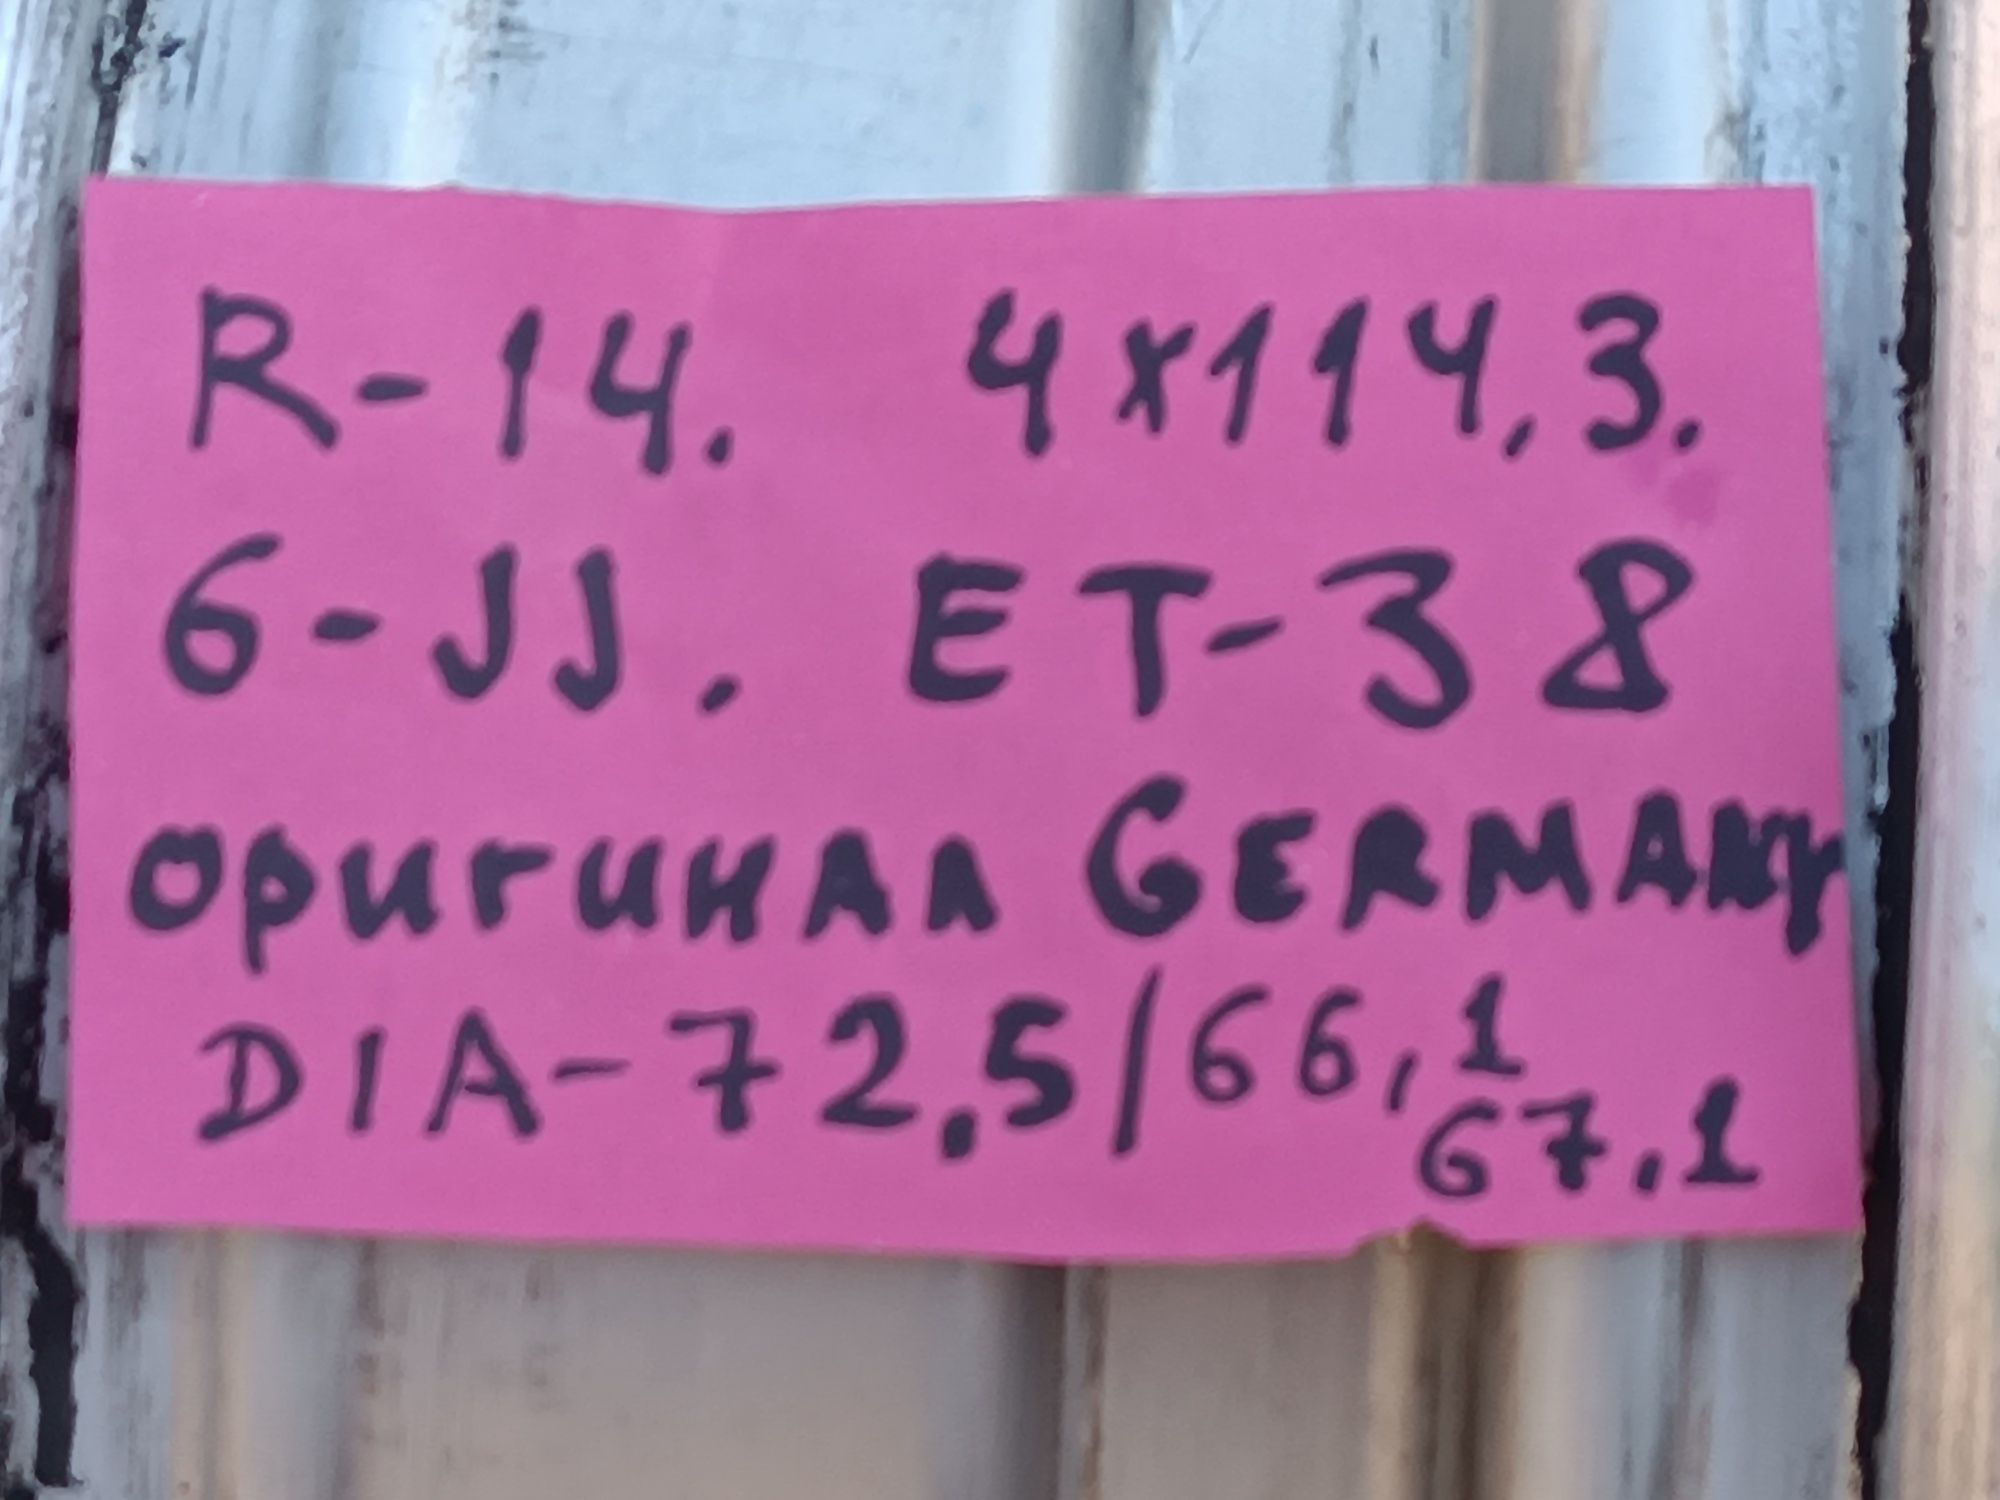 R-14. 4x114,3.
6-JJ. ET-38
оригинал GERMANY
DIA-72,5/66,1
67,1